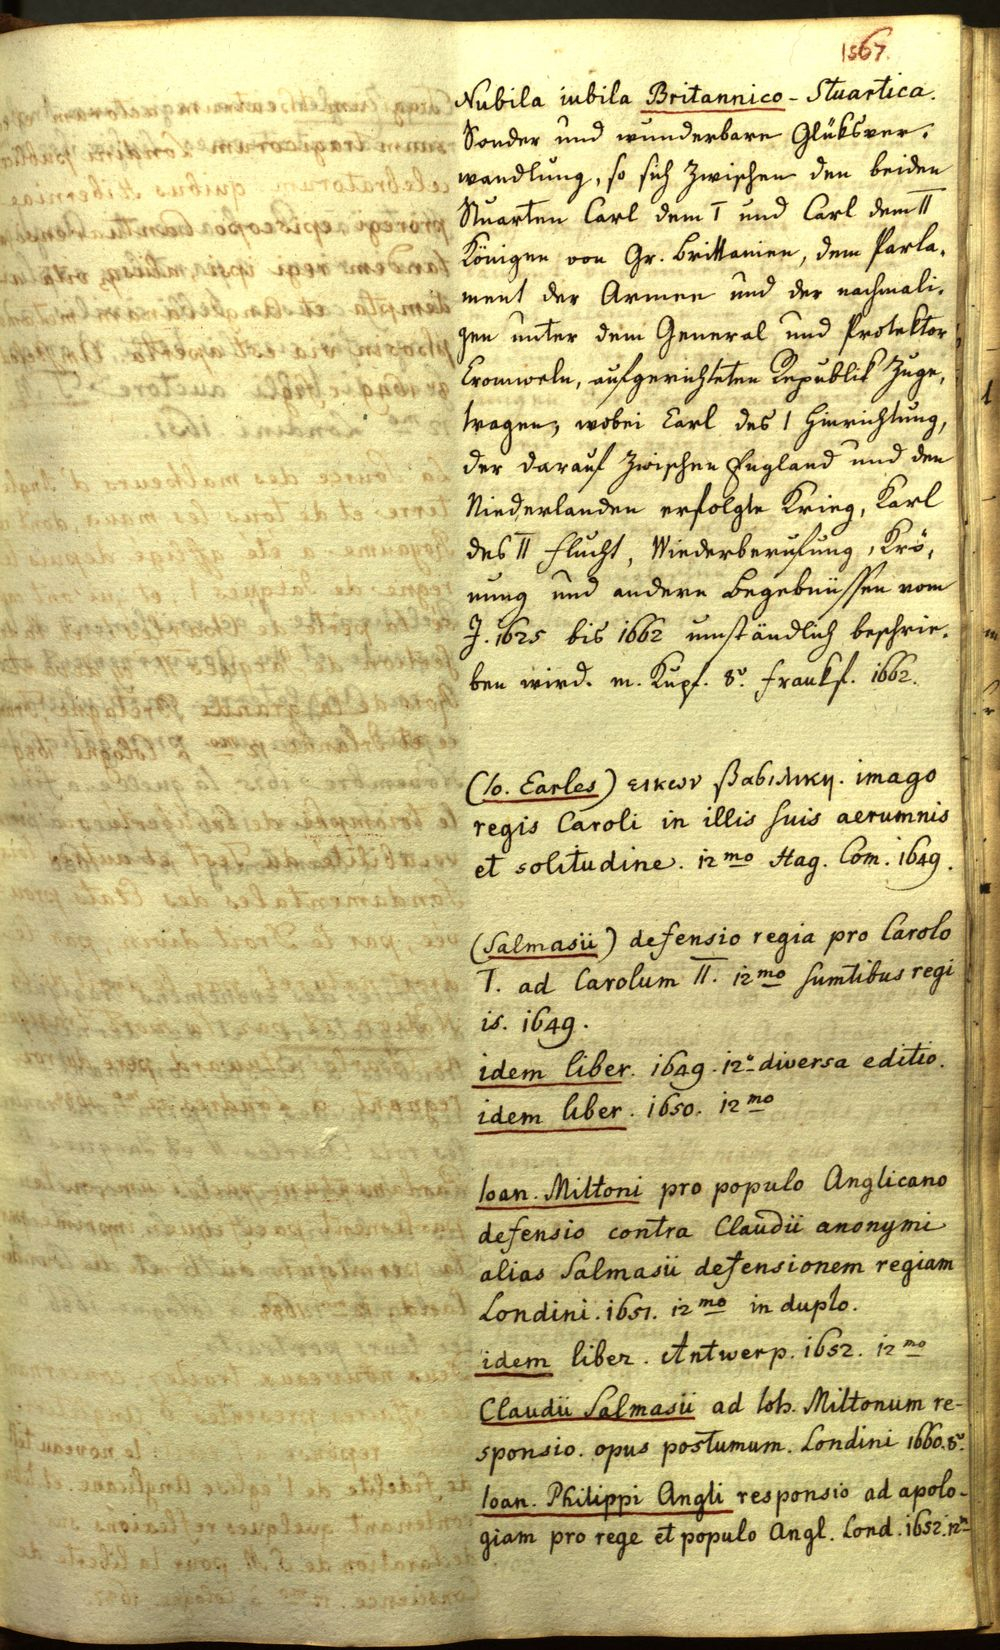 1567.
Nubila iubila Britannico - Stuartica.
Sonder und wunderbare Glüksver-
wandlung, so sich zwischen den beiden
Stuarten Carl dem I und Carl dem II
Königen von Gr. Brittanien, dem Parla-
ment der Armee und der nachmali-
gen unter dem General und Protektor
Cromweln, aufgerichteten Republik zuge-
tragen, wobei Carl des I Hinrichtung,
der darauf zwischen England und den
Niederlanden erfolgte Krieg, Karl
des II Flucht, Wiederberufung, Krö-
nung und andere Begebnüssen vom
J. 1625 bis 1662 umständlich beschrie-
ben wird. m. Kupf. 8º. Frankf. 1662.
(Io. Earles) εικων βαςιλικη. imago
regis Caroli in illis suis aerumnis
et solitudine. 12mo Hag. Com. 1649.
(Salmasii) defensio regia pro Carolo
I. ad Carolum II. 12mo sumtibus regi
is. 1649.
idem liber. 1649. 12º diversa editio.
idem liber. 1650. 12mo
Ioan. Miltoni pro populo Anglicano
defensio contra Claudii anonymi
alias Salmasii defensionem regiam
Londini. 1651. 12mo in duplo.
idem liber. Antwerp. 1652. 12mo
Claudii Salmasii ad Ioh. Miltonum re-
sponsio. opus postumum. Londini 1660. 8º.
Ioan. Philippi Angli responsio ad apolo-
giam pro rege et populo Angl. Lond. 1652. 12m